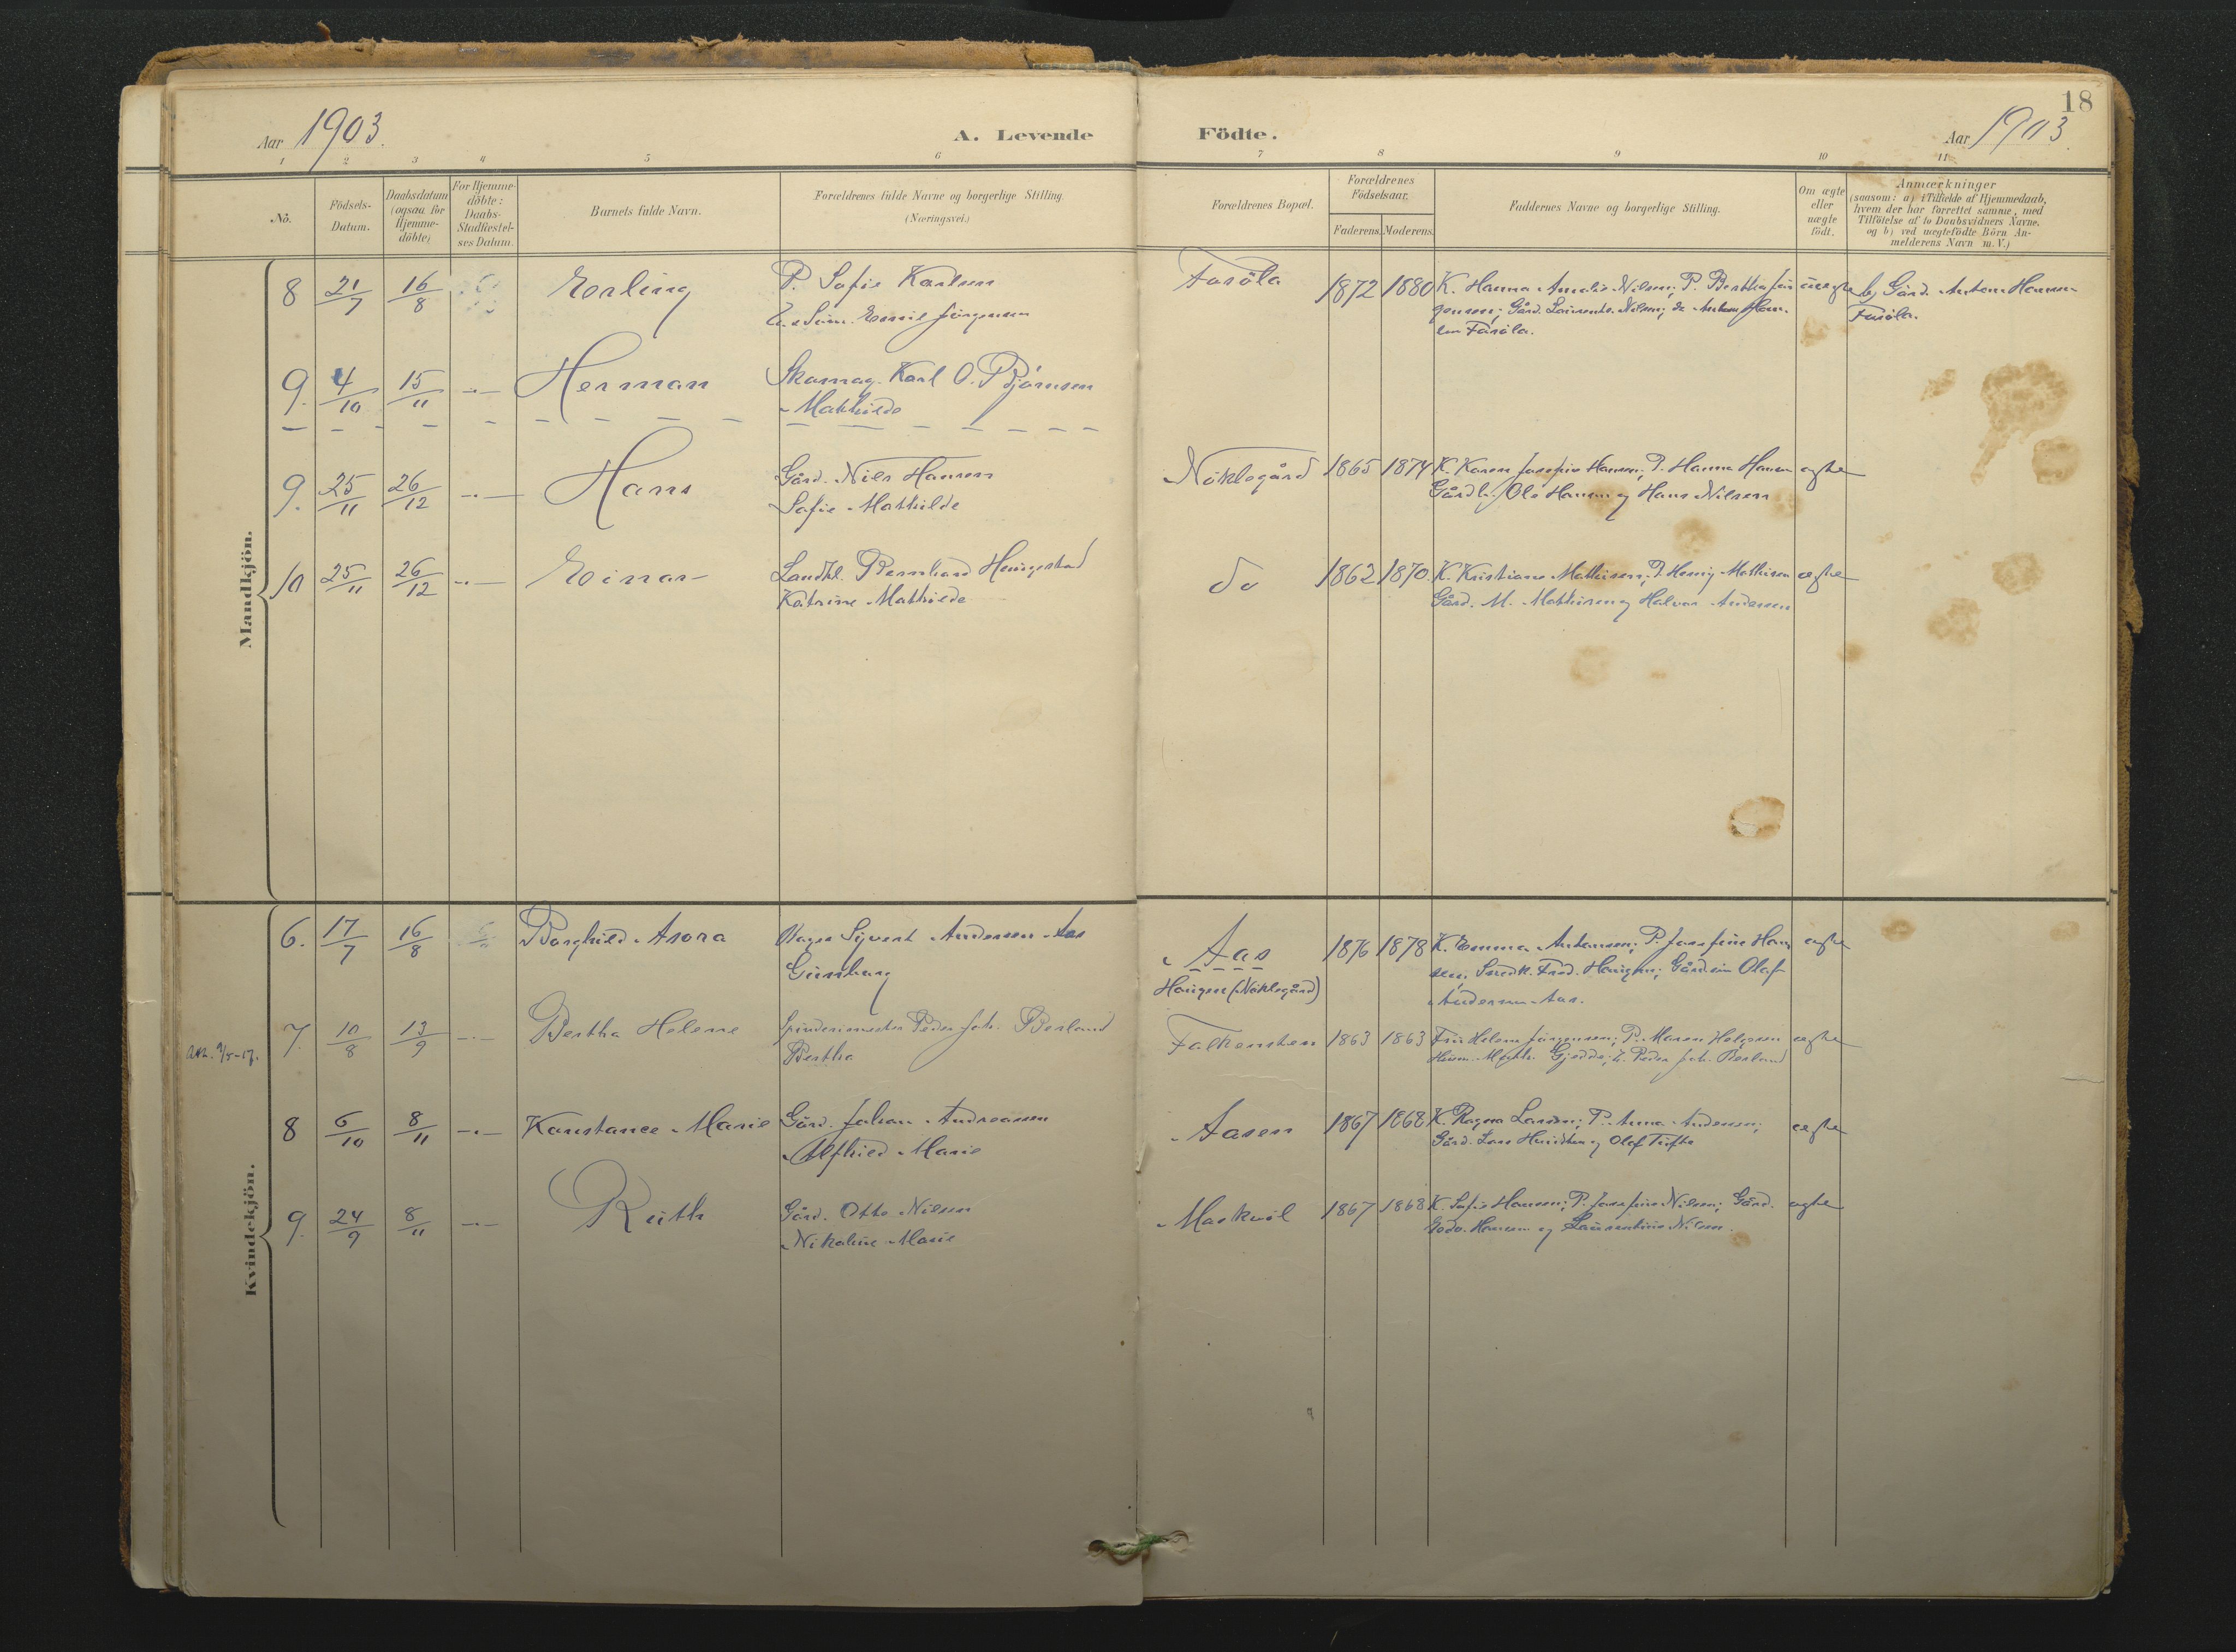 18
Aar 1903.
A. Levende Födte.
Aar 1903.
1 2 3 4 5 6 7 8 9 10 11
No.
Födsels-Datum.
Daabsdatum (ogsaa for Hjemme-döbte)
For Hjemme-döbte: Daabs-Stadfæstel-ses Datum.
Barnets fulde Navn.
Forældrenes fulde Navne og borgerlige Stilling (Næringsvei.)
Forældrenes Bopæl.
Forældrenes Födselsaar.
Faderens. Moderens.
Faddernes Navne og borgerlige Stilling.
Om ægte eller uægte födt.
Anmærkninger
(saasom: a) i Tilfælde af Hjemmedaab,
hvem der har forrettet samme, med
Tilföielse af to Daabsvidners Navne.
og b) ved uægtefödte Börn An-
melderens Navn m. V.)
Mandkjön.
8 21/7 16/8 Erling P. Sofie Karlsen Faröla 1872 1880 K. Hanna Amalie Nilsen; P. Bertha Jör uægte b) Gård. Anton Hansen
Emil Jörgensen gensen; Gård. Laurents Nilsen; do Anton Han- Faröla.
sen Faröla.
9. 4/10 15/11 -"- Herman Skomag. Karl O. Bjørnsen
Mathilde
9. 25/11 26/12 -"- Hans Gård. Nils Hansen Nöklegård 1865 1874 K. Karen Josefine Hansen; P. Hanna Hansen ægte
Sofie Mathilde Gårdb. Ole Hansen og Hans Nilsen
10 25/11 26/12 -"- Einar Landhl. Bernhard Heingestad do 1862 1870. K. Kristiane Mathisen; P. Henny Mathisen ægte
Katrine Mathilde Gård. M. Mathisen og Halvor Andersen
Kvindekjön.
6. 17/7 16/8 Borghild Asora Syvert Andersen Aas Aas 1876 1878 K. Emma Antonsen; P. Josefine Han ægte
Gunborg Haugen (Nöklegård) sen; Snedk. Fred. Haugen; Olaf
Andersen Aas.
7. 10/8 13/9 -"- Bertha Helene Spinderimester Peder Joh. Berland Falkensten 1863 1863 Fru Helene Jörgensen; P. Maren Helgesen ægte
Bertha Gjedde; Peder Joh. Berland
8 6/10 8/11 -"- Konstance Marie Gård. Johan Andreassen Aasen 1867 1868 K. Ragna Larsen; P. Anna Andersen; ægte
Alfhild Marie Gård. Lars og Olaf Tufte
9. 24/9 8/11 -"- Ruth Gård. Otto Nilsen 1867 1868 K. Sofie Hansen; P. Josefine Nilsen; Gård. ægte
Nikoline Marie Hansen og Laurentius Nilsen.